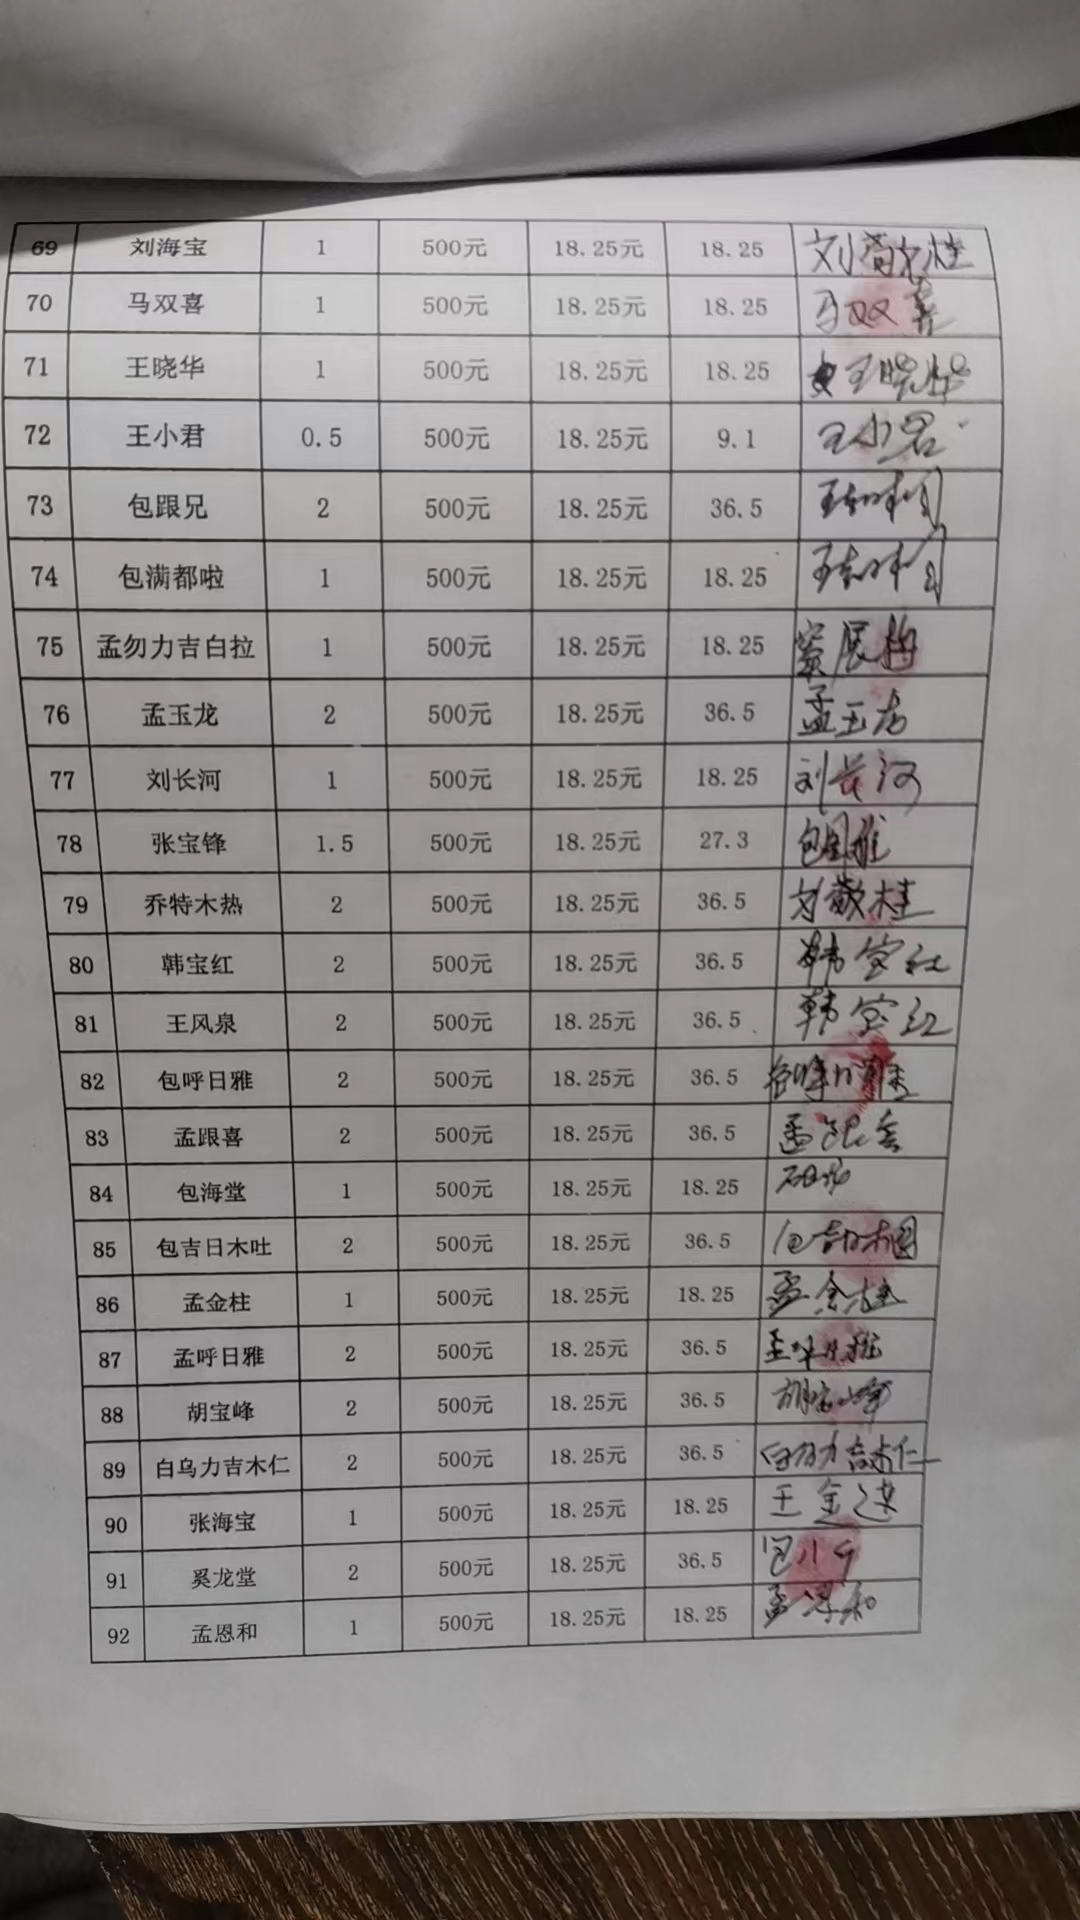 69 刘海宝 1 500元 18.25元 18.25 刘敬桂
70 马双喜 1 500元 18.25元 18.25 马双喜
71 王晓华 1 500元 18.25元 18.25 王晓华
72 王小君 0.5 500元 18.25元 9.1 王小君
73 包跟兄 2 500元 18.25元 36.5
74 包满都啦 1 500元 18.25元 18.25
75 孟勿力吉白拉 1 500元 18.25元 18.25
76 孟玉龙 2 500元 18.25元 36.5 孟玉龙
77 刘长河 1 500元 18.25元 18.25 刘长河
78 张宝锋 1.5 500元 18.25元 27.3
79 乔特木热 2 500元 18.25元 36.5 刘敬桂
80 韩宝红 2 500元 18.25元 36.5 韩宝红
81 王风泉 2 500元 18.25元 36.5 韩宝红
82 包呼日雅 2 500元 18.25元 36.5 包呼日雅
83 孟跟喜 2 500元 18.25元 36.5 孟跟喜
84 包海堂 1 500元 18.25元 18.25
85 包吉日木吐 2 500元 18.25元 36.5 包吉日木图
86 孟金柱 1 500元 18.25元 18.25 孟金柱
87 孟呼日雅 2 500元 18.25元 36.5 孟呼日雅
88 胡宝峰 2 500元 18.25元 36.5 胡宝峰
89 白乌力吉木仁 2 500元 18.25元 36.5 白乌力吉木仁
90 张海宝 1 500元 18.25元 18.25
91 奚龙堂 2 500元 18.25元 36.5
92 孟恩和 1 500元 18.25元 18.25 孟恩和